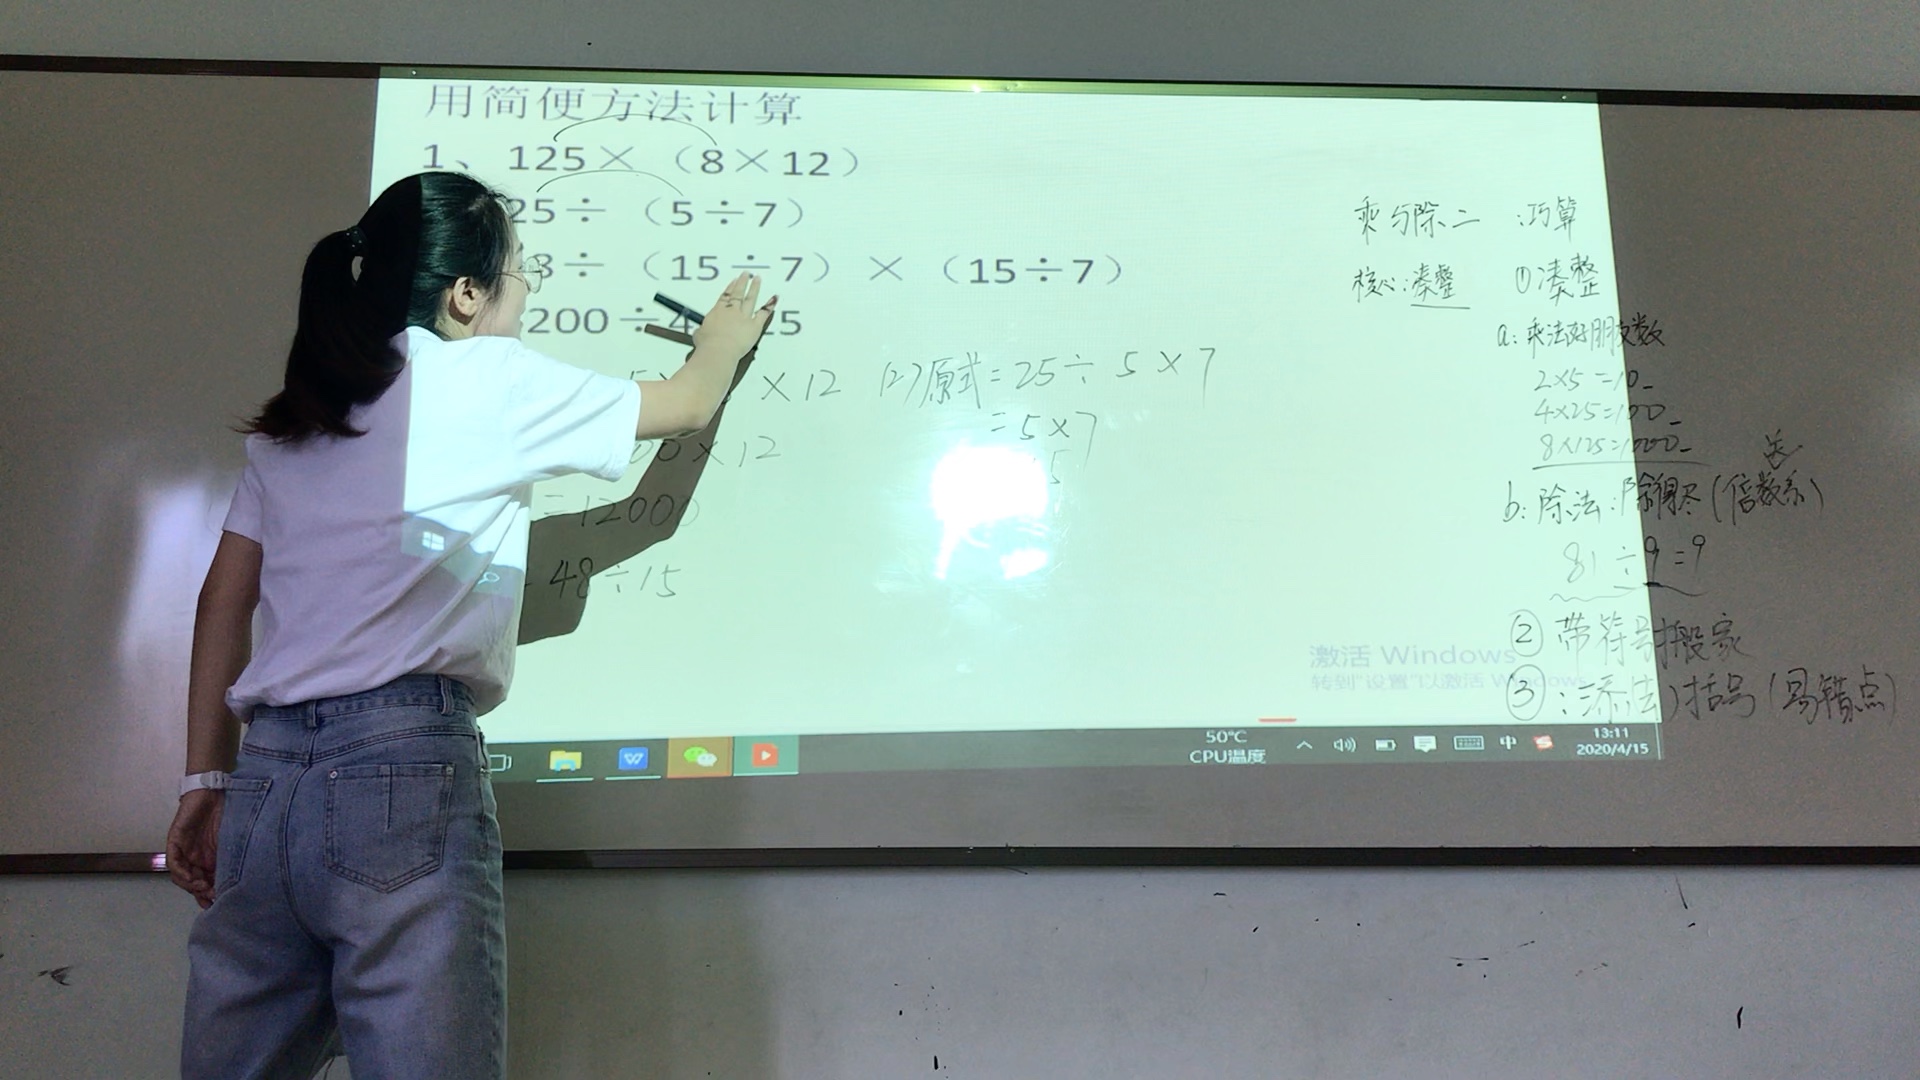 用简便方法计算
1、125×（8×12）
25÷（5÷7）
8÷（15÷7）×（15÷7）
200÷4 25
×12
00×12
=12000
48÷15
(2)原式=25÷5×7
=5×7
5
乘与除二：巧算
核心：凑整 ①凑整
a：乘法好朋友数
2×5=10
4×25=100
8×125=1000
b：除法：除得尽（倍数关系）
81÷9=9
②带符号搬家
③：添（去）括号（易错点）
激活 Windows
转到"设置"以激活 Windows。
50℃
CPU温度
中
13:11
2020/4/15